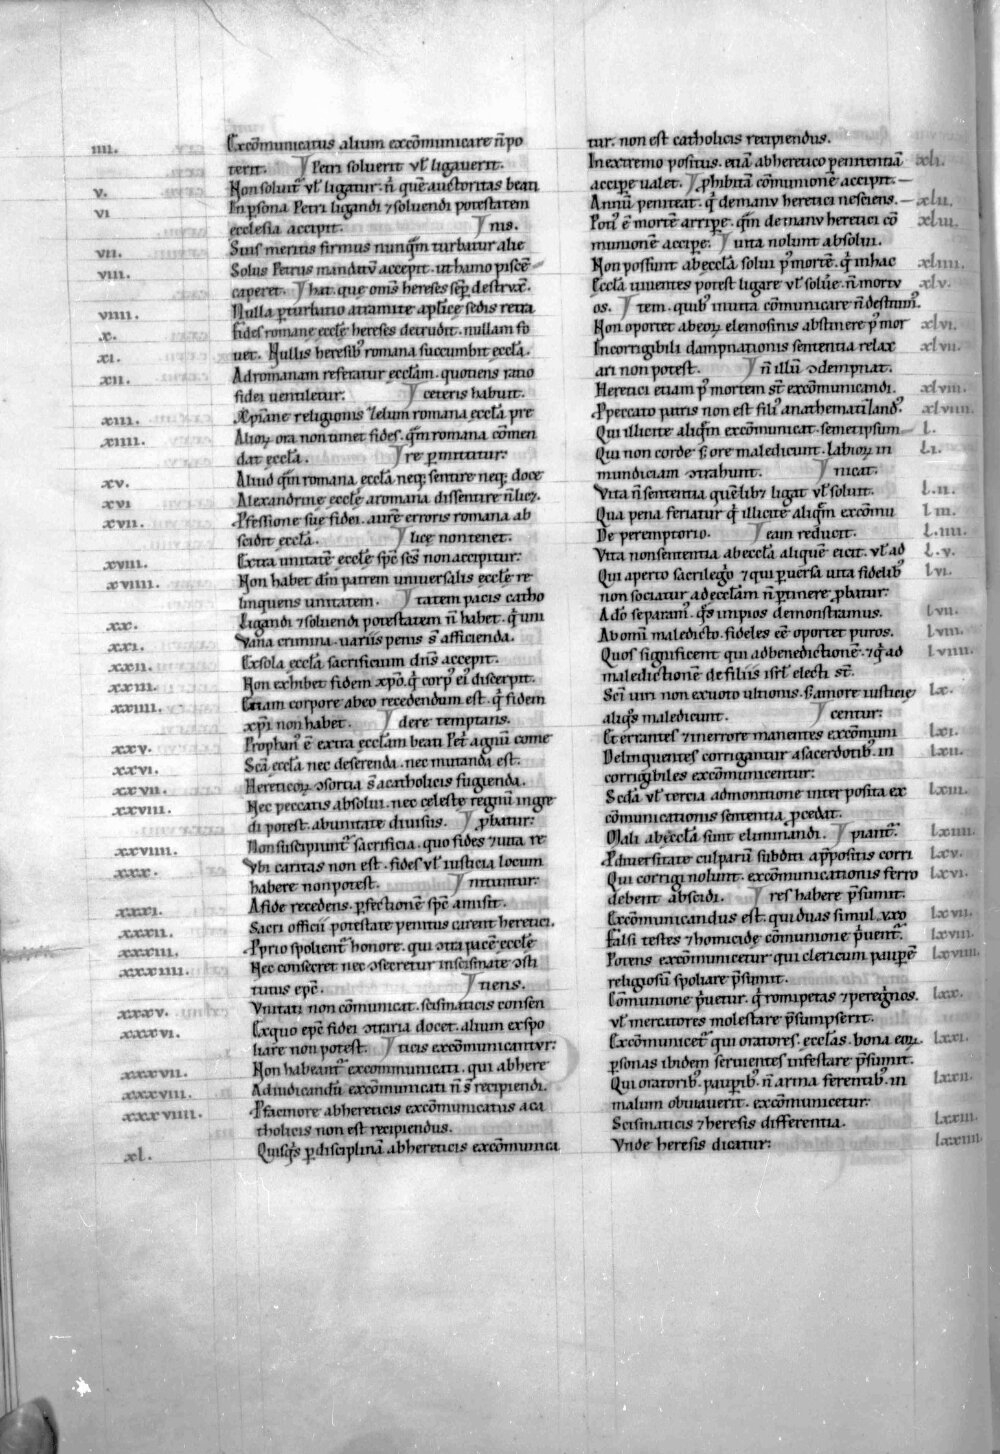 IIII. Excōmunicatus alium excōmunicare n̄ po
terit. ⁋ Petri soluerit vl̄ ligauerit.
V. Non soluit᷑ vl̄ ligatur. n̄ quē auctoritas beati
VI In p̱sona Petri ligandi ⁊ soluendi potestatem
ecclesia accipit. ⁋ nis.
VII. Suis meritis firmus nunq̄m turbatur alie
VIII. Solus Petrus mandatū accepit. ut hamo piscē
caperet. ⁋ hat. que om̄s hereses semp̱ destrux̄.
VIIII. Nulla p̱turbatio a tramite aplīce sedis retra
X. Fides romane eccłę hereses detrudit. nullam fo
XI. uet. Nullis heresibꝰ romana succumbit eccła.
XII. Ad romanam referatur eccłam. quotiens ratio
fidei uentiletur. ⁋ ceteris habuit.
XIII. Xp̄iane religionis zelum romana eccła pre
XIIII. Alioꝝ ora non timet fides. q̄m romana cōmen
dat eccła. ⁋ re p̱mittitur.
XV. Aliud q̄m romana eccła neq; sentire neq; doce
XVI Alexandrinę ecclę a romana dissentire n̄ licꝫ.
XVII. Ꝓfessione suę fidei. aurē erroris romana ab
scidit eccła. ⁋ licę non tenet.
XVIII. Extra unitatē ecclę sp̄c sc̄s non accipitur.
XVIIII. Non habet dm̄ patrem uniuersalis ecclę re
linquens unitatem. ⁋ tatem pacis catho
XX. Ligandi ⁊ soluendi potestatem n̄ habet. q̇ uni
XXI. Varia crimina uariis penis s̄ afficienda.
XXII. Ex sola eccła sacrificium dn̄s accepit.
XXIII. Non exhibet fidem xp̄o. q̇ corpꝰ eiꝰ discerpit.
XXIIII. Etiam corpore ab eo recedendum est. q̇ fidem
xp̄i non habet. ⁋ dere temptans.
XXV. Prophanꝰ ē extra eccłam beati Pet̉ agnū come
XXVI. Sc̄a eccła nec deserenda. nec mutanda est.
XXVII. Hereticoꝝ ↄsortia s̄ a catholicis fugienda.
XXVIII. Nec peccatis absolui. nec celeste regnū ingre
di potest. ab unitate diuisus. ⁋ ꝓbatur.
XXVIIII. Non suscipiunt᷑ sacrificia. quo fides ⁊ uita re
XXX. Vbi caritas non est. fides vl̄ iusticia locum
habere non potest. ⁋ ntuntur.
XXXI. A fide recedens. p̱fectionē sp̄c amisit.
XXXII. Sacri officii potestate penitus carent heretici.
XXXIII. Ꝓprio spolient᷑ honore. qui ↄtra pacē ecclę
XXXIIII. Nec consecret nec ↄsecretur in scismate ↄsti
tutus ep̄c. ⁋ tiens.
XXXV. Vnitati non cōmunicat. scismaticis consen
XXXVI. Ex quo ep̄c fidei ↄtraria docet. alium expo
liare non potest. ⁋ ticis excōmunicantur.
XXXVII. Non habeant᷑ excommunicati. qui ab here
XXXVIII. Ad iudicandū excōmunicati n̄ s̄ recipiendi.
XXXVIIII. Ꝓ facinore ab hereticis excōmunicatus a ca
tholicis non est recipiendus.
XL. Quisq̇s p̱ disciplinā ab hereticis excōmunica
tur. non est catholicis recipiendus.
In extremo positus. etiā ab heretico penitentiā XLI.
accipe ualet. ⁋ ꝓhibitā cōmunionē accipit.
Annū peniteat. q̇ de manu heretici nesciens. XLII.
Potiꝰ ē mortē arripe. q̄m de manu heretici cō XLIII.
munionē accipe. ⁋ uita nolunt absolui.
Non possunt ab eccła solui pꝰ mortē. q̇ in hac XLIIII.
Eccła uiuentes potest ligare vl̄ soluē. n̄ mortu XLV.
os. ⁋ tem. quibꝰ in uita cōmunicare n̄ destitimꝰ.
Non oportet ab eoꝝ elemosinis abstinere pꝰ mor XLVI.
Incorrigibili dampnationis sententia relax XLVII.
ari non potest. ⁋ n̄ illū ↄdempnat.
Heretici etiam pꝰ mortem s̄t excōmunicandi. XLVIII.
Ꝓ peccato patris non est filiꝰ anathematizandꝰ. XLVIIII.
Qui illicite aliq̄m excōmunicat. semetipsum L.
Qui non corde. s; ore maledicunt. labioꝝ in LI.
mundiciam ↄtrahunt. ⁋ nicat.
Vita n̄ sententia quēlibꝫ ligat vl̄ soluit. L.II.
Qua pena feriatur q̇ illicite aliq̄m excōmu L III.
De peremptorio. ⁋ eam reducit. L.IIII.
Vita non sententia ab eccła aliquē eicit. vl̄ ad L.V.
Qui aperto sacrilegꝰ ⁊ qui p̱uersa uita fidelibꝰ LVI.
non sociatur ad eccłam n̄ p̱tinere ꝓbatur.
A dō separamꝰ. q̇s impios demonstramus. LVII.
Ab omī maledicto. fideles eē oportet puros. LVIII.
Quos significent qui ad benedictionē. ⁊ q̇ ad LVIIII.
maledictionē de filiis isrł electi s̄t.
Sc̄i uiri non ex uoto ultionis. s; amore iusticię LX.
aliq̇s maledicunt. ⁋ centur.
Et errantes ⁊ in errore manentes excōmuni LXI.
Delinquentes corrigantur a sacerdotibꝰ. in LXII.
corrigibiles excōmunicentur.
Scd̄a vl̄ tercia admonitione interposita ex LXIII.
cōmunicationis sententia ꝓcedat.
Mali ab eccła sunt eliminandi. ⁋ piant᷑. LXIIII.
Ꝓ diuersitate culparū subditi a p̄positis corri LXV.
Qui corrigi nolunt. excōmunicationis ferro LXVI.
debent abscidi. ⁋ res habere p̄sumit.
Excōmunicandus est. qui duas simul uxo LXVII.
Falsi testes ⁊ homicidę cōmunione p̄uent᷑. LXVIII.
Potens excōmunicetur qui clericum paupē LXVIIII.
religiosū spoliare p̄sumit.
Cōmunione p̄uetur. q̇ romipetas ⁊ peregꝰnos. LXX.
vl̄ mercatores molestare p̄sumpserit.
Excōmunicet᷑ qui oratores. eccłas. bona eoꝝ. LXXI.
p̱sonas ibidem seruientes infestare p̄sumit.
Qui oratoribꝰ. paup̱ibꝰ. n̄ arma ferentibꝰ. in LXXII.
malum obuiauerit. excōmunicetur.
Scismaticis ⁊ heresis differentia. LXXIII.
Vnde heresis dicatur. LXXIIII.